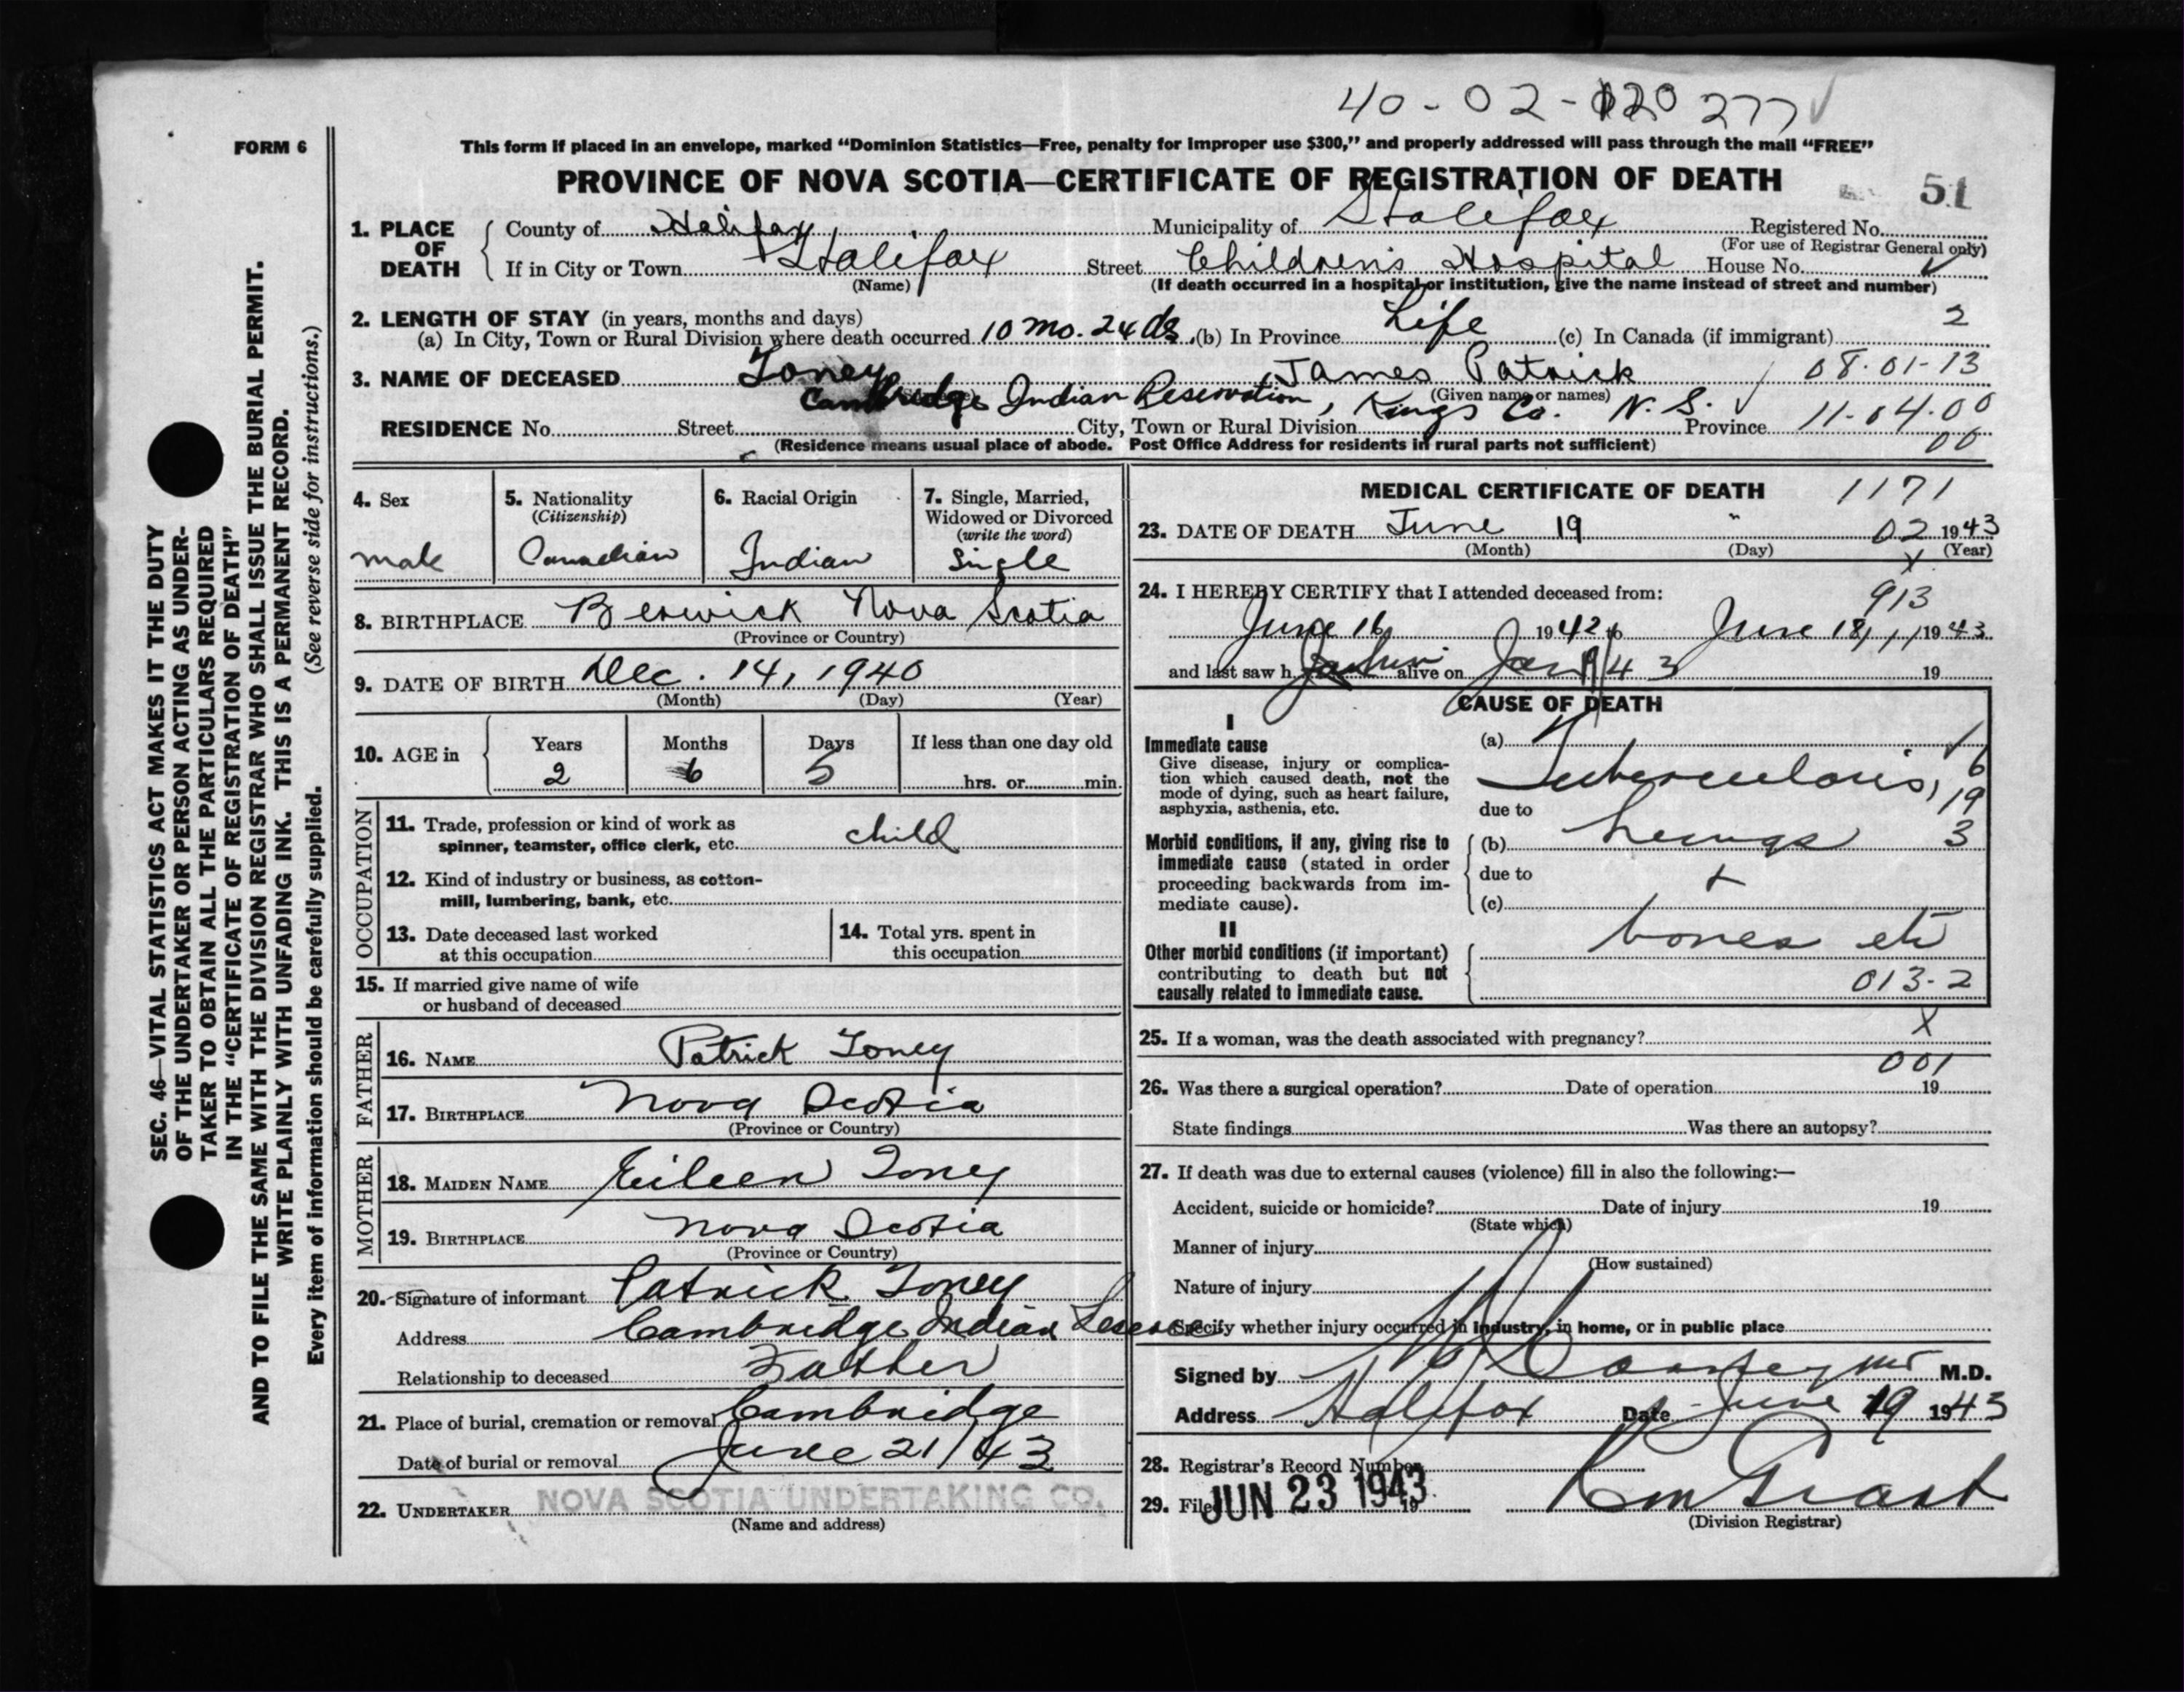 40-02-120 277 ✓
FORM 6
This form if placed in an envelope, marked “Dominion Statistics—Free, penalty for improper use $300,” and properly addressed will pass through the mail “FREE”
PROVINCE OF NOVA SCOTIA—CERTIFICATE OF REGISTRATION OF DEATH
51
1. PLACE OF DEATH
County of Halifax Municipality of Halifax Registered No.
(For use of Registrar General only)
If in City or Town Halifax Street Children's Hospital House No. ✓
(Name) (If death occurred in a hospital or institution, give the name instead of street and number)
2. LENGTH OF STAY (in years, months and days)
(a) In City, Town or Rural Division where death occurred 10 mo. 24 ds. (b) In Province Life (c) In Canada (if immigrant) 2
3. NAME OF DECEASED Toney, James Patrick 08-01-13
(Given name or names)
Cambridge Indian Reservation, Kings Co. N.S. ✓ 11-04-00
RESIDENCE No. Street City, Town or Rural Division Province
00
(Residence means usual place of abode. Post Office Address for residents in rural parts not sufficient)
4. Sex
male
5. Nationality
(Citizenship)
Canadian
6. Racial Origin
Indian
7. Single, Married,
Widowed or Divorced
(write the word)
Single
8. BIRTHPLACE Berwick Nova Scotia
(Province or Country)
9. DATE OF BIRTH Dec. 14, 1940
(Month) (Day) (Year)
10. AGE in
Years Months Days If less than one day old
2 6 5 hrs. or min.
OCCUPATION
11. Trade, profession or kind of work as
spinner, teamster, office clerk, etc. child
12. Kind of industry or business, as cotton-
mill, lumbering, bank, etc.
13. Date deceased last worked
at this occupation
14. Total yrs. spent in
this occupation
15. If married give name of wife
or husband of deceased
FATHER
16. NAME Patrick Toney
17. BIRTHPLACE Nova Scotia
(Province or Country)
MOTHER
18. MAIDEN NAME Eileen Toney
19. BIRTHPLACE Nova Scotia
(Province or Country)
20. Signature of informant Patrick Toney
Address Cambridge Indian Reserve
Relationship to deceased Father
21. Place of burial, cremation or removal Cambridge
Date of burial or removal June 21/43
22. UNDERTAKER NOVA SCOTIA UNDERTAKING CO.
(Name and address)
MEDICAL CERTIFICATE OF DEATH 1171
23. DATE OF DEATH June 19 " 02 1943
(Month) (Day) (Year)
X
24. I HEREBY CERTIFY that I attended deceased from:
913
June 16 1942 to June 18, 1943
and last saw h alive on 19
CAUSE OF DEATH
I
Immediate cause
Give disease, injury or complica-
tion which caused death, not the
mode of dying, such as heart failure,
asphyxia, asthenia, etc.
(a) ✓
Tuberculosis, 6
due to 19
Morbid conditions, if any, giving rise to
immediate cause (stated in order
proceeding backwards from im-
mediate cause).
(b) Lungs 3
due to +
(c)
II
Other morbid conditions (if important)
contributing to death but not
causally related to immediate cause.
bones etc
013-2
X
25. If a woman, was the death associated with pregnancy?
001
26. Was there a surgical operation? Date of operation 19
State findings Was there an autopsy?
27. If death was due to external causes (violence) fill in also the following:—
Accident, suicide or homicide? Date of injury 19
(State which)
Manner of injury
(How sustained)
Nature of injury
Specify whether injury occurred in industry, in home, or in public place
Signed by M.D.
Address Halifax Date June 19 1943
28. Registrar's Record Number
29. Filed JUN 23 1943 19
(Division Registrar)
SEC. 46—VITAL STATISTICS ACT MAKES IT THE DUTY
OF THE UNDERTAKER OR PERSON ACTING AS UNDER-
TAKER TO OBTAIN ALL THE PARTICULARS REQUIRED
IN THE “CERTIFICATE OF REGISTRATION OF DEATH”
AND TO FILE THE SAME WITH THE DIVISION REGISTRAR WHO SHALL ISSUE THE BURIAL PERMIT.
WRITE PLAINLY WITH UNFADING INK. THIS IS A PERMANENT RECORD.
Every item of information should be carefully supplied. (See reverse side for instructions.)